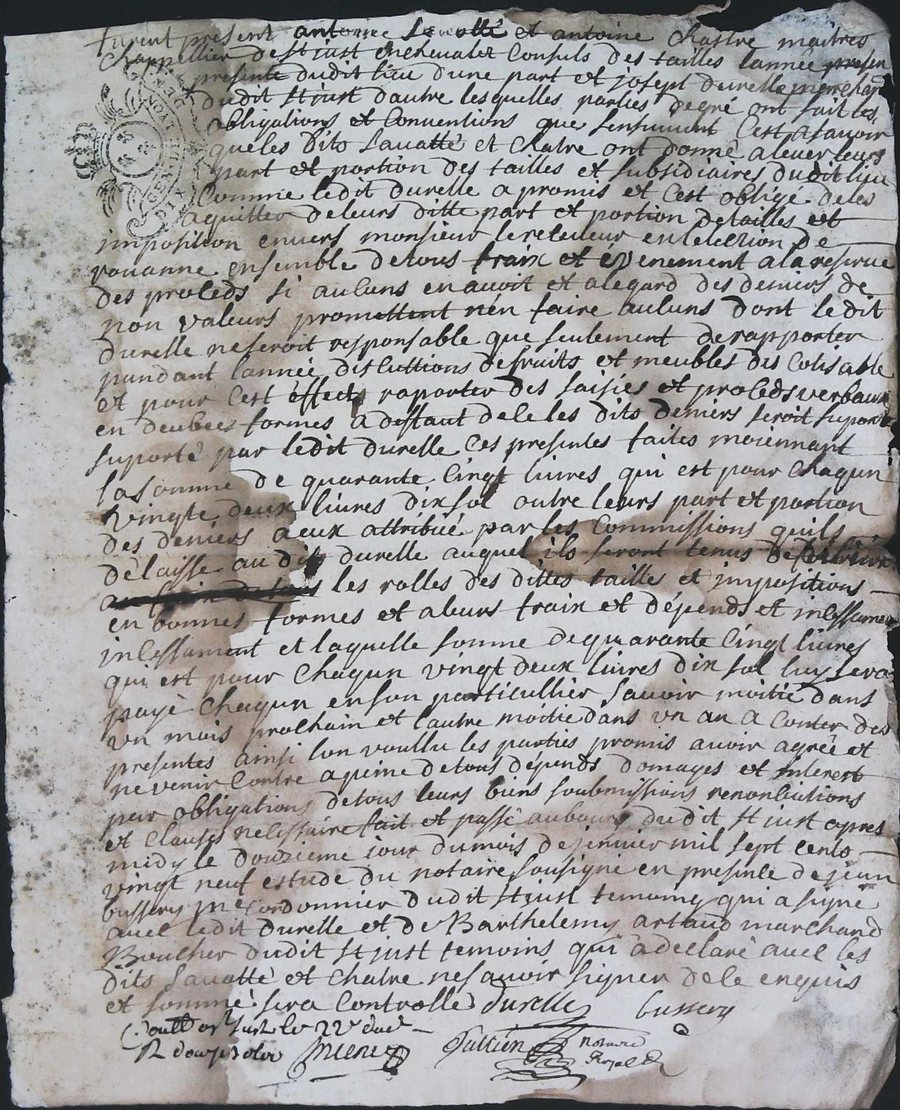 furent présent antoinne Lavatté et antoine Chatre maitres
Chappellier de St just en chevalet Consuls des tailles lannée presen
presente dudit lieu dune part et joseph durelle
dudit St just dautre lesquelles parties degré ont fait les
obligations et Conventions que sensuivent Cest a savoir
que les Dits Lavatté et Chatre ont donné alever leurs
part et portion des tailles et subsidiaires dudit lieu
Comme ledit durelle a promis et cest obligé deles
aquitter deleurs ditte part et portion detailles et
imposition envers monsieur le receveur en lelection de
rouanne ensemble detous fraix et evenement ala reserve
des proceds si aulcuns en avoit et alegard des deniers de
non valeurs promettent n'en faire aulcuns dont ledit
durelle neseroit responsable que seulement de rapporter
pandant lannée discuttions defruits et meubles des Cotisable
et pour Cest effects raporter des saisies et proceds verbaux
en deubees formes a deffaut dele les dits deniers seroit suporté
suporté par ledit durelle Ces presentes faites moiennant
la somme de quarante Cingt livres qui est pour Chaqun
vingte deux livres dix sol outre leurs part et portion
des deniers aeux attribué par les Commissions quils
delaisse audit durelle auquel ils seront tenus de
les rolles des dittes tailles et impositions
en bonnes formes et aleurs fraix et dépends et incessament
incessament et laquelle somme de quarante Cingt livres
qui est pour Chaqun vingt deux livres dix sol luy sera
payé Chaqun en son particullier savoir moitié dans
un mois prochain et lautre moitié dans un an a Conter des
presentes ainsi lon voullu les parties promis avoir agréé et
ne venir Contre apeine detous dépends domages et interest
par obligations detous leurs biens soubmissions renontiations
et Clauses necessaire fait et passé au bourg dudit St just apres
midy le douzieme jour dumois dejenvier mil sept cents
vingt neuf estude du notaire sousigné en presence de jean
bussery me Cordonnier dudit St just temoing qui asigné
avec ledit durelle et de Barthelemy artaud marchand
Boucher dudit St just temoins qui adeclaré avec les
dits Lavatté et Chatre ne savoir signer dele enquis
et sommé sera Controllé durelle bussery
St just le 22e dud
notaire
Royal